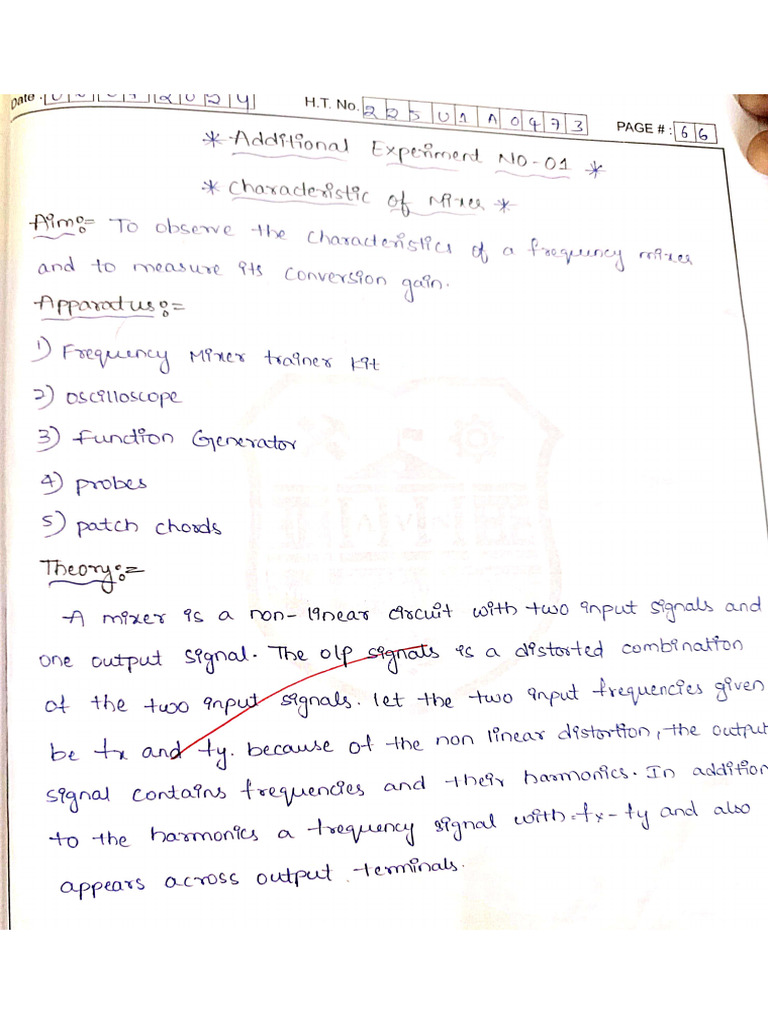 Date : 2024 H.T. No. 225U1A0473 PAGE # : 66
* Additional Experiment NO-01 *
* Characteristic of Mixer *
Aim:= To observe the characteristics of a frequency mixer
and to measure its conversion gain.
Apparatus:=
1) Frequency Mixer trainer kit
2) Oscilloscope
3) Function Generator
4) probes
5) patch chords
Theory:=
A mixer is a non-linear circuit with two input signals and
one output signal. The o/p signals is a distorted combination
of the two input signals. let the two input frequencies given
be fx and fy. because of the non linear distortion, the output
signal contains frequencies and their harmonics. In addition
to the harmonics a frequency signal with fx-fy and also
appears across output terminals.